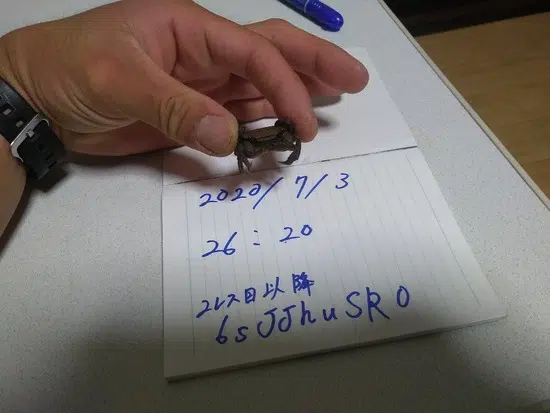 2020/7/3
26:20
2レス目以降
6sJJhuSR0